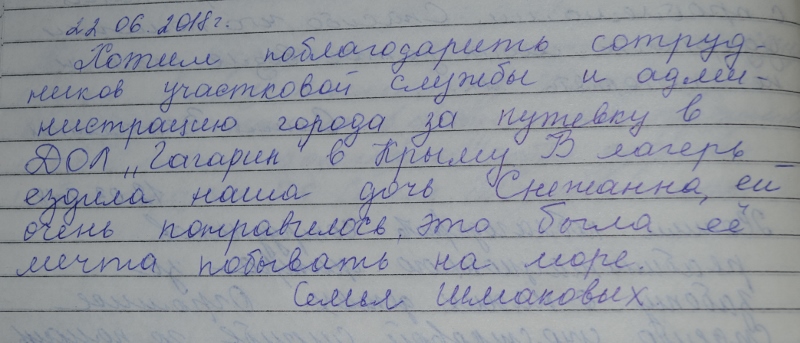 22.06.2018г.
Хотим поблагодарить сотруд-
ников участковой службы и адми-
нистрацию города за путевку в
ДОЛ „Гагарин" в Крыму В лагерь
ездила наша дочь Снежанна, ей
очень понравилось, это была её
мечта побывать на море.
Семья Шмаковых